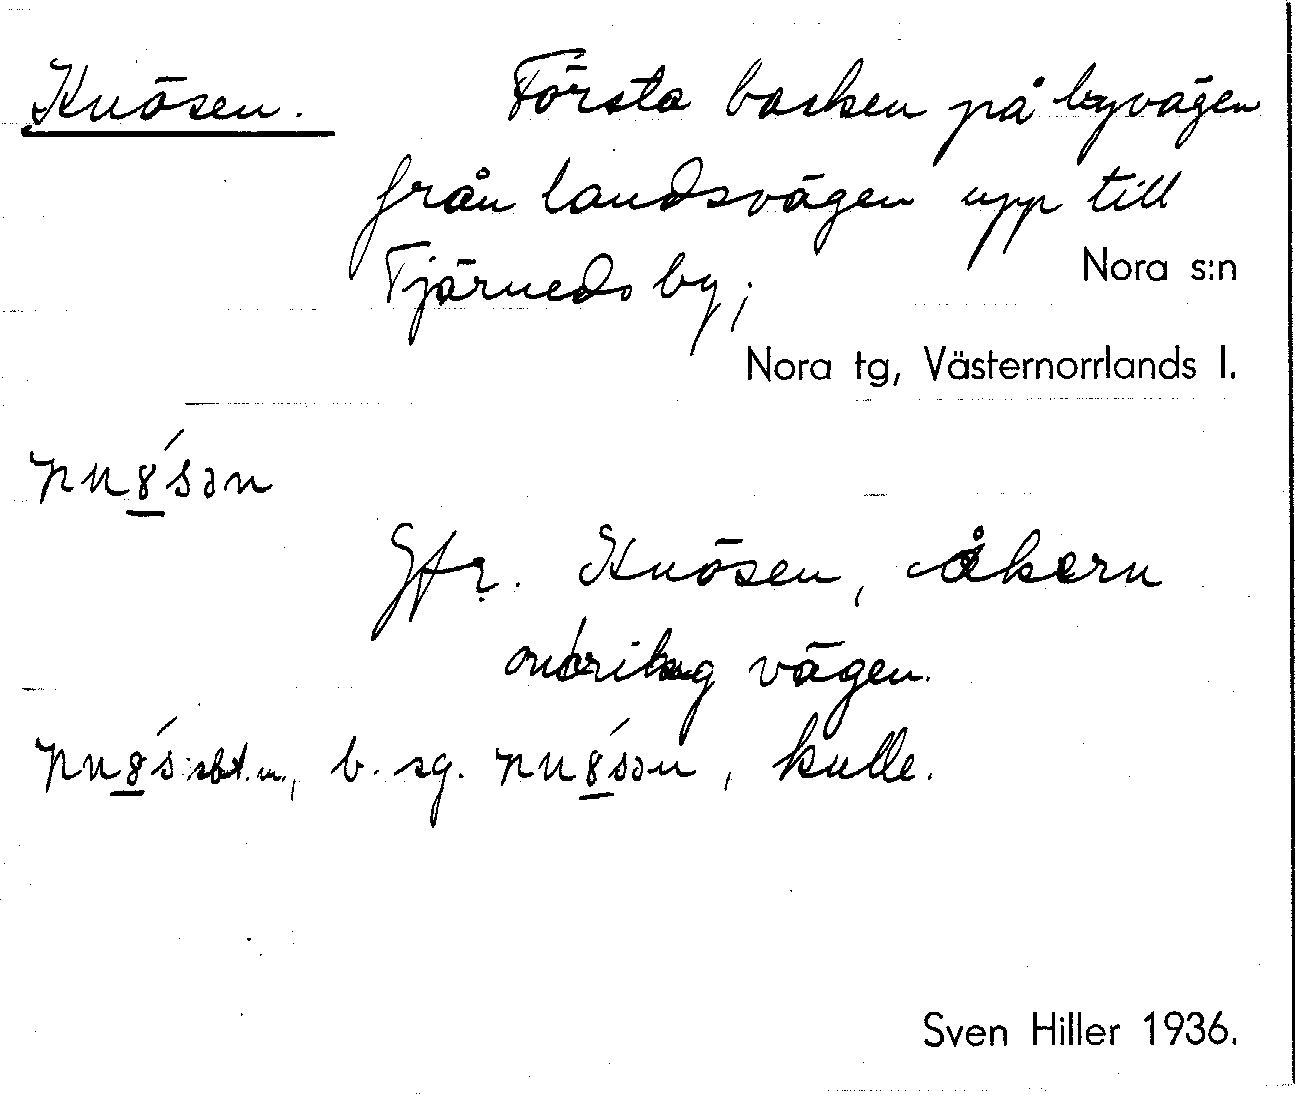 Knösen. Första backen på byvägen
från landsvägen upp till
Fjärneds by; Nora s:n
Nora tg, Västernorrlands l.
Jfr. Knösen, åkern
omkring vägen.
sbt. m., b. sg. kulle.
Sven Hiller 1936.